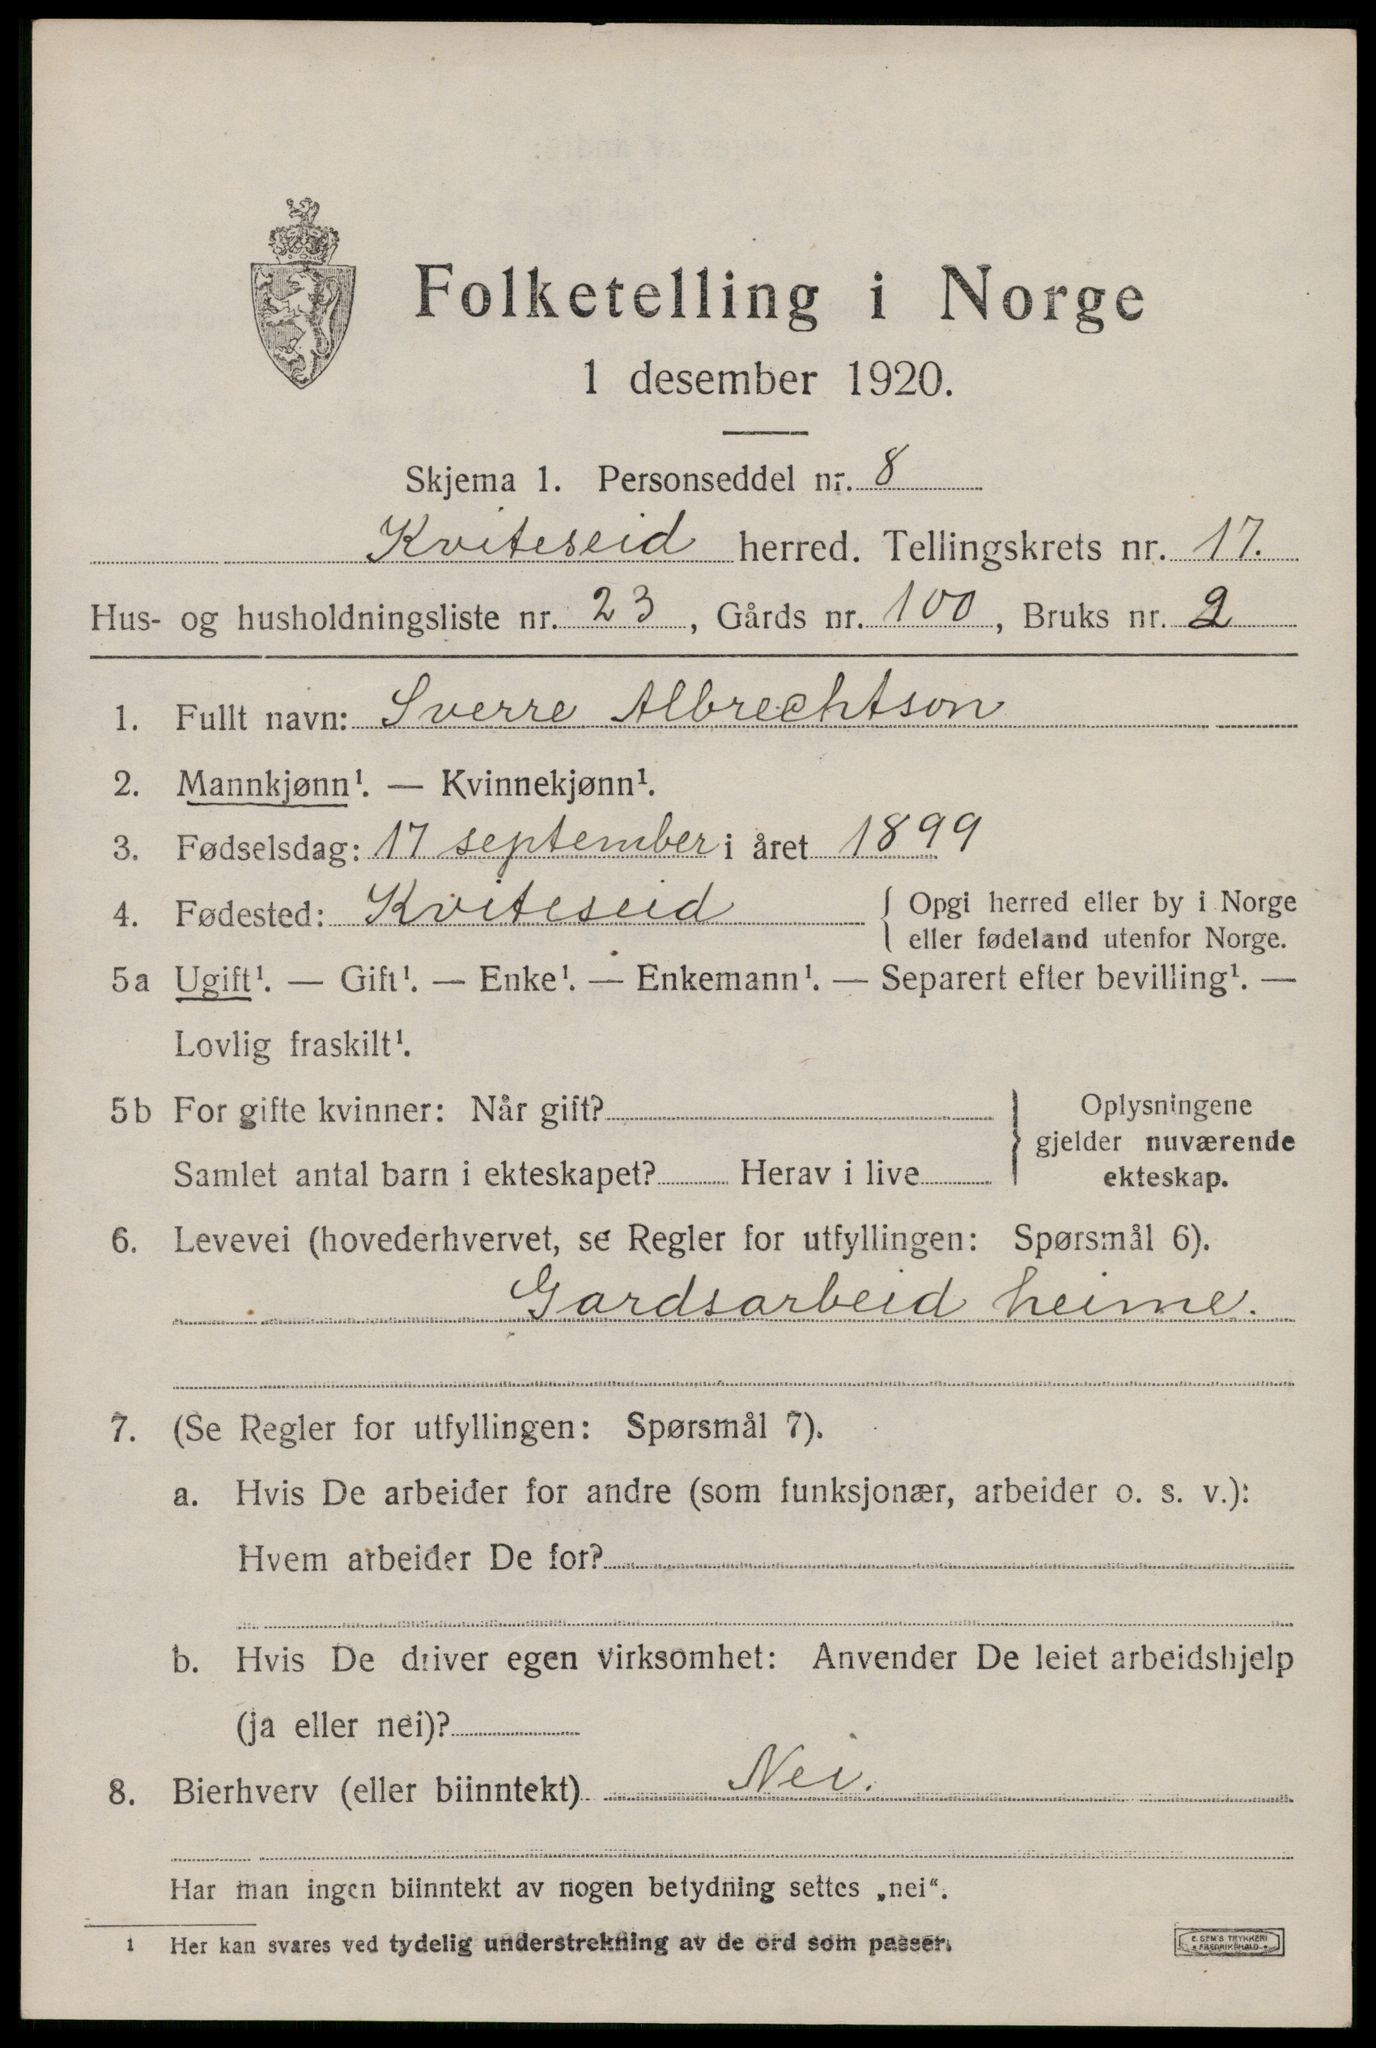 Folketelling i Norge
1 desember 1920.
Skjema 1. Personseddel nr. 8
Kviteseid herred. Tellingskrets nr. 17.
Hus- og husholdningsliste nr. 23, Gårds nr. 100, Bruks nr. 2
1. Fullt navn: Sverre Albrechtson
2. Mannkjønn¹. — Kvinnekjønn¹.
3. Fødselsdag: 17 september i året 1899
4. Fødested: Kviteseid { Opgi herred eller by i Norge
eller fødeland utenfor Norge.
5a Ugift¹. — Gift¹. — Enke¹. — Enkemann¹. — Separert efter bevilling¹. —
Lovlig fraskilt¹.
5b For gifte kvinner: Når gift? } Oplysningene
gjelder nuværende
Samlet antal barn i ekteskapet? Herav i live ekteskap.
6. Levevei (hovederhvervet, se Regler for utfyllingen: Spørsmål 6).
Gardsarbeid heime.
7. (Se Regler for utfyllingen: Spørsmål 7).
a. Hvis De arbeider for andre (som funksjonær, arbeider o. s. v.):
Hvem arbeider De for?
b. Hvis De driver egen virksomhet: Anvender De leiet arbeidshjelp
(ja eller nei)?
8. Bierhverv (eller biinntekt) Nei.
Har man ingen biinntekt av nogen betydning settes „nei“.
1 Her kan svares ved tydelig understrekning av de ord som passer.
E. SEM'S TRYKKERI
FREDRIKSHALD